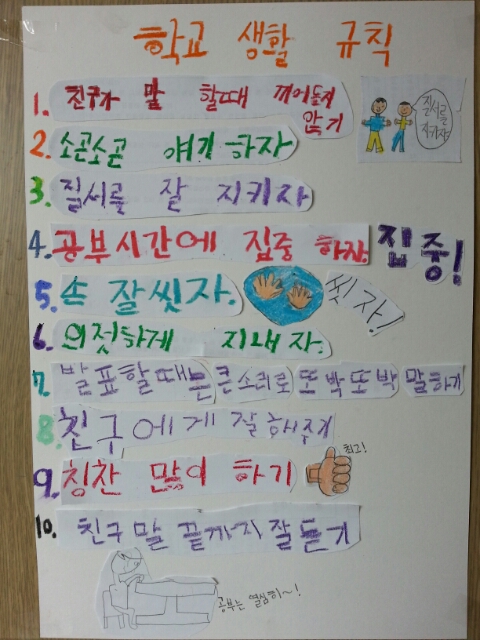 학교 생활 규칙
1. 친구가 말 할때 끼어들지
않기
질서를
지키자
2. 소곤소곤 얘기 하자
3. 질서를 잘 지키자
4. 공부시간에 집중 하자. 집중!
5. 손 잘씻자. 씻자!
6. 의젓하게 지내자.
7. 발표할때는 큰소리로 또박또박 말하기
8. 친구에게 잘해주기
9. 칭찬 많이 하기 최고!
10. 친구말 끝까지 잘듣기
공부는 열심히~!